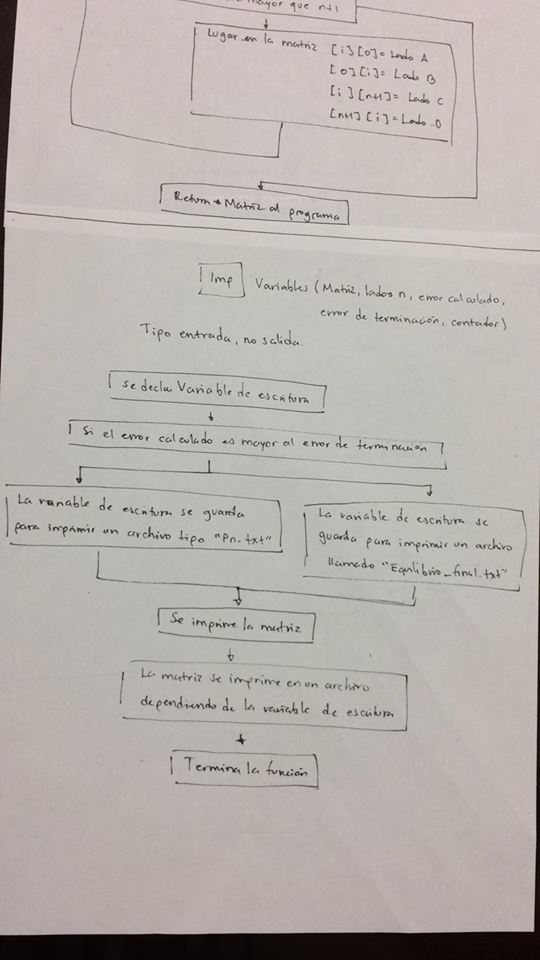 mayor que n+1
Lugar en la matriz [i][0]= Lado A
[0][i]= Lado B
[i][n+1]= Lado C
[n+1][i]= Lado D
Return → Matriz al programa
Imp Variables (Matriz, lados n, error calculado,
error de terminación, contador)
Tipo entrada, no salida.
Se decla Variable de escritura
Si el error calculado es mayor al error de terminación
La variable de escritura se guarda
para imprimir un archivo tipo "Pn.txt"
La variable de escritura se
guarda para imprimir un archivo
llamado "Equilibrio_final.txt"
Se imprime la matriz
La matriz se imprime en un archivo
dependiendo de la variable de escritura
Termina la función